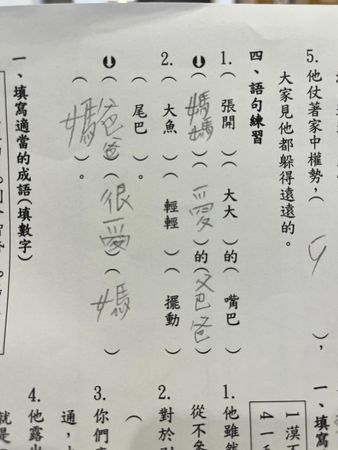 5. 他仗著家中權勢，( 9 )，
大家見他都躲得遠遠的。
四、語句練習
1. ( 張開 )( 大大 )的( 嘴巴 )
( 媽媽 )( 愛 )的( 爸爸 )
2. ( 大魚 )( 輕輕 )( 擺動 )
( 尾巴 )。
( 爸爸 )( 很愛 )( 媽 )
( 媽 )。
一、填寫適當的成語(填數字)
一、填寫
1 漠不
4 一
1. 他雖然
從不
2. 對於
(
3. 你們
通，
4. 他露出
就是